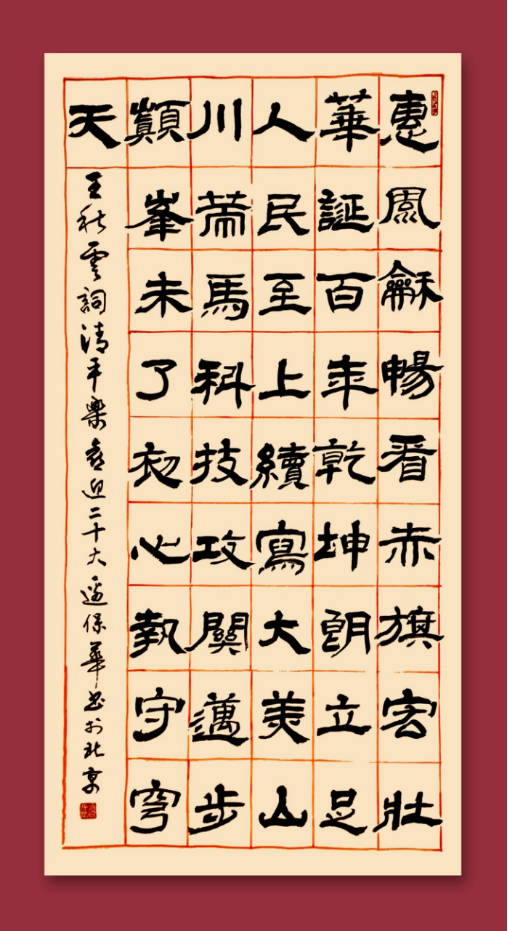 惠風龢暢看赤旗宏壯
華誕百年乾坤朗立足
人民至上續寫大美山
川策馬科技攻關邁步
巔峯未了初心執守穹
天
王秋雲詞清平樂喜迎二十大保華書於北京